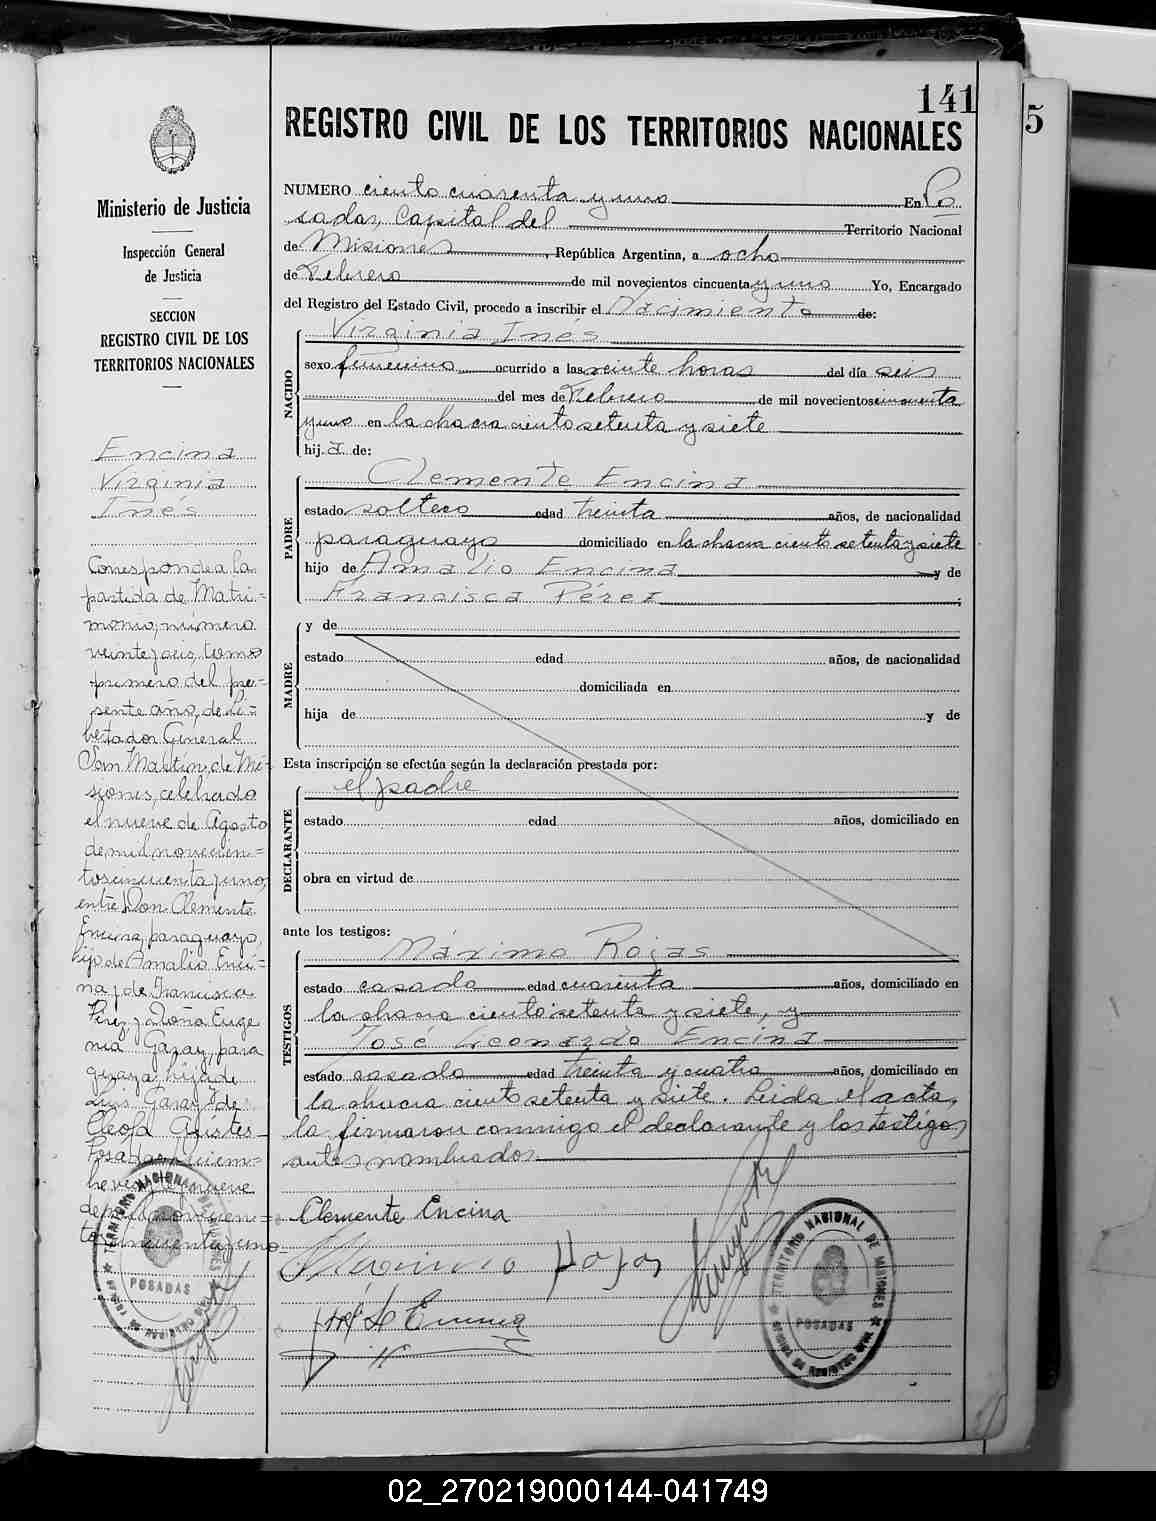 141
5
REGISTRO CIVIL DE LOS TERRITORIOS NACIONALES
Ministerio de Justicia
Inspección General
de Justicia
SECCION
REGISTRO CIVIL DE LOS
TERRITORIOS NACIONALES
Encina
Virginia
Inés
Corresponde a la
partida de Matri-
monio, número
veinte y seis, tomo
primero del pre-
sente año, de Li-
bertador General
San Martín de Mi-
siones, celebrado
el nueve de Agosto
de mil novecien-
tos cincuenta y uno,
entre Don Clemente
Encina, paraguayo,
hijo de Amalio Enci-
na y de Francisca
Pérez y Doña Euge
nia Garay, para
guaya, hija de
Luis Garay y de
Posadas,
de mil novecien-
tos cincuenta y uno
NUMERO ciento cuarenta y uno En Po
sadas, Capital del Territorio Nacional
de Misiones, República Argentina, a ocho
de Febrero de mil novecientos cincuenta y uno Yo, Encargado
del Registro del Estado Civil, procedo a inscribir el Nacimiento de:
NACIDO
Virginia Inés
sexo femenino ocurrido a las veinte horas del día seis
del mes de Febrero de mil novecientos cincuenta
y uno en la chacra ciento setenta y siete
hij a de:
PADRE
Clemente Encina
estado soltero edad treinta años, de nacionalidad
paraguayo domiciliado en la chacra ciento setenta y siete
hijo de Amalio Encina y de
Francisca Pérez ;
MADRE
y de
estado edad años, de nacionalidad
domiciliada en
hija de y de
Esta inscripción se efectúa según la declaración prestada por:
DECLARANTE
el padre
estado edad años, domiciliado en
obra en virtud de
ante los testigos:
TESTIGOS
Máximo Rojas
estado casado edad cuarenta años, domiciliado en
la chacra ciento setenta y siete, y
José Leonardo Encina
estado casado edad treinta y cuatro años, domiciliado en
la chacra ciento setenta y siete. Leida el acta,
la firmaron conmigo el declarante y los testigos
antes nombrados.
Clemente Encina
Maximo Rojas
TERRITORIO NACIONAL DE MISIONES
POSADAS
OFICINA DE REGISTRO CIVIL
TERRITORIO NACIONAL DE MISIONES
POSADAS
OFICINA DE REGISTRO CIVIL
02_270219000144-041749